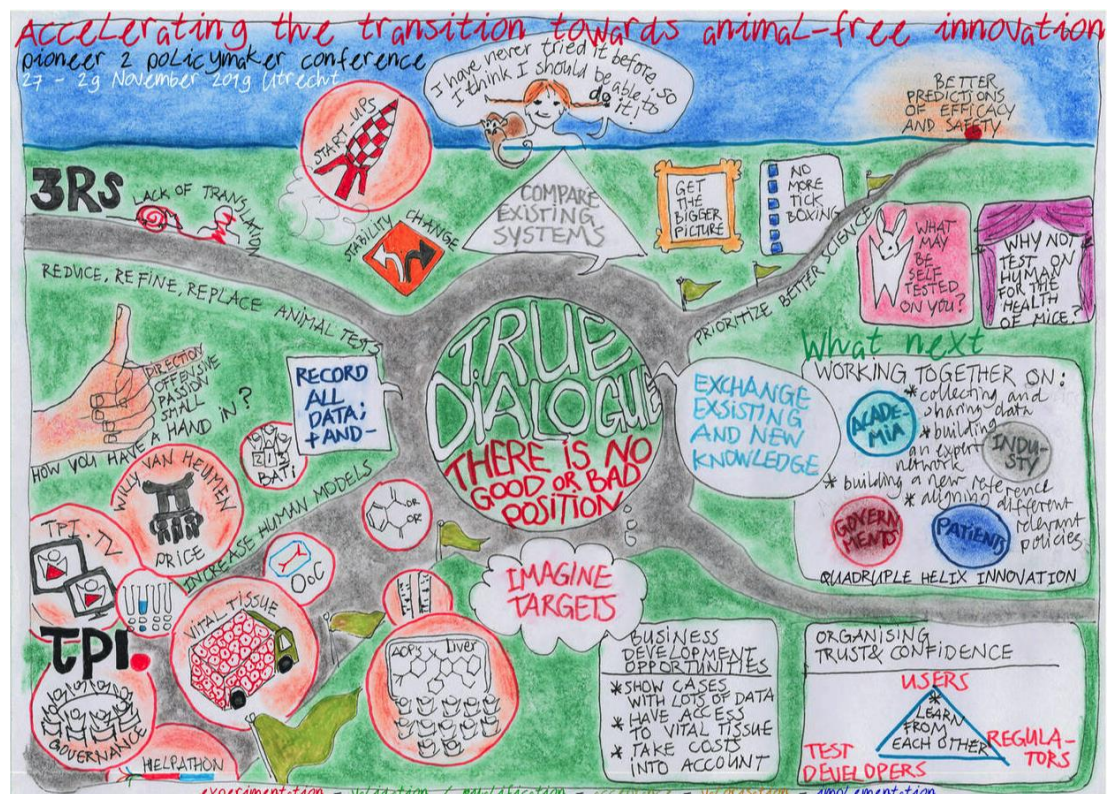 Accelerating the transition towards animal-free innovation
pioneer 2 policymaker conference
27 - 29 November 2019 Utrecht
I have never tried it before, so
I think I should be able to
do it!
BETTER
PREDICTIONS
OF EFFICACY
AND SAFETY
START-UPS
3RS
LACK OF TRANSLATION
STABILITY
CHANGE
COMPARE
EXISTING
SYSTEMS
GET
THE
BIGGER
PICTURE
NO
MORE
TICK
BOXING
WHAT
MAY
BE
SELF
TESTED
ON YOU?
WHY NOT
TEST ON
HUMAN
FOR THE
HEALTH
OF MICE?
REDUCE, REFINE, REPLACE ANIMAL TESTS
PRIORITIZE BETTER SCIENCE
DIRECTION
OFFENSIVE
PASSION
SMALL
HOW YOU HAVE A HAND IN?
RECORD
ALL
DATA;
+ AND -
TRUE
DIALOGUE
THERE IS NO
GOOD OR BAD
POSITION
EXCHANGE
EXSISTING
AND NEW
KNOWLEDGE
What next
WORKING TOGETHER ON:
* collecting and
sharing data
* building
an expert
network
* building a new reference
* aligning different
relevant
policies
ACADE-
MIA
INDU-
STY
GOVERN
MENTS
PATIENTS
QUADRUPLE HELIX INNOVATION
WILLY VAN HEUMEN
PRICE
BAT;
INCREASE HUMAN MODELS
OR
OR
TPI.TV
OoC
VITAL TISSUE
tpi.
GOVERNANCE
HELPATHON
AOPs
Liver
IMAGINE
TARGETS
BUSINESS
DEVELOPMENT
OPPORTUNITIES
* SHOW CASES
WITH LOTS OF DATA
* HAVE ACCESS
TO VITAL TISSUE
* TAKE COSTS
INTO ACCOUNT
ORGANISING
TRUST & CONFIDENCE
USERS
*
LEARN
FROM
EACH OTHER
TEST
DEVELOPERS
REGULA-
TORS